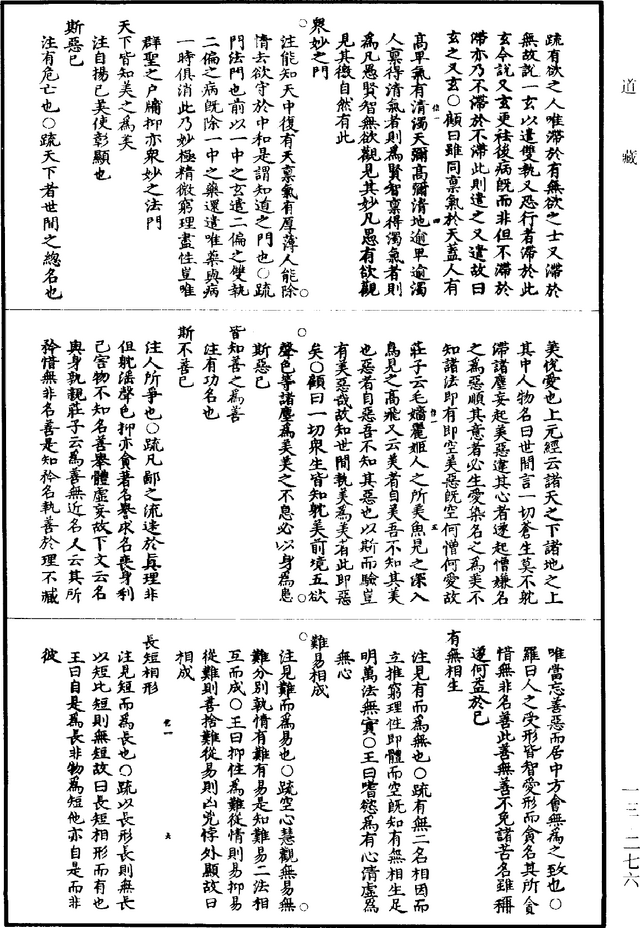 道藏
疏有欲之人唯滯於有無欲之士又滯於
無故說一玄以遣雙執又恐行者滯於此
玄今說又玄更祛後病旣而非但不滯於
滯亦乃不滯於不滯此則遣之又遣故曰
玄之又玄○顧曰雖同禀氣於天蓋人有
高卑氣有清濁天彌高彌清地逾卑逾濁
人禀得清氣者則爲賢智禀得濁氣者則
爲凡愚賢智無欲觀見其妙凡愚有欲觀
見其徼自然有此
衆妙之門
注能知天中復有天禀氣有厚薄人能除
情去欲守於中和是謂知道之門也○疏
門法門也前以一中之玄遣二偏之雙執
二偏之病旣除一中之藥還遣唯藥與病
一時俱消此乃妙極精微窮理盡性豈唯
群聖之戶牖抑亦衆妙之法門
天下皆知美之爲美
注自揚己美使彰顯也
斯惡已
注有危亡也○疏天下者世間之總名也
美悦愛也上元經云諸天之下諸地之上
其中人物名曰世間言一切蒼生莫不躭
滯諸塵妄起美惡違其心者遂起憎嫌名
之爲惡順其意者必生愛染名之爲美不
知諸法即有即空美惡旣空何憎何愛故
莊子云毛嬙麗姬人之所美魚見之深入
鳥見之高飛又云美者自美吾不知其美
也惡者自惡吾不知其惡也以斯而驗豈
有美惡哉故知世間執美爲美者此即惡
矣○顧曰一切衆生皆知躭美前境五欲
聲色等諸塵爲美美之不息必以身爲患
斯惡已
皆知善之爲善
注有功名也
斯不善已
注人所爭也○疏凡鄙之流迷於眞理非
但躭滛聲色抑亦貪著名譽求名喪身利
己害物不知名善舉體虛妄故下文云名
與身孰親莊子云爲善無近名又云其所
矜惜無非名善是知矜名執善於理不臧
唯當忘善惡而居中方會無爲之致也○
羅曰人之受形皆智愛形而貪名其所貪
惜無非名善此善無善不免諸苦名雖稱
遂何益於己
有無相生
注見有而爲無也○疏有無二名相因而
立推窮理性即體而空旣知有無相生足
明萬法無實○王曰嗜慾爲有心清虛爲
無心
難易相成
注見難而爲易也○疏空心慧觀無易無
難分別執情有難有易是知難易二法相
互而成○王曰抑性爲難從情則易抑易
從難則吉捨難從易則凶兇悖外顯故曰
相成
長短相形
注見短而爲長也○疏以長形長則無長
以短比短則無短故曰長短相形而有也
王曰自是爲長非物爲短他亦自是而非
彼
一三—二七六